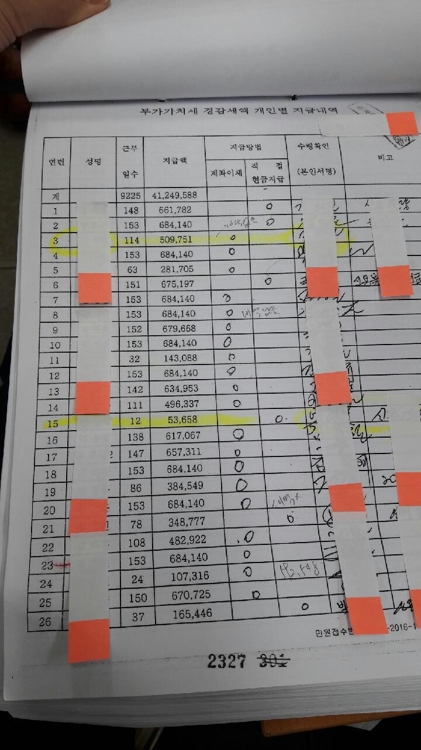 부가가치세 경감세액 개인별 지급내역
연번 성명 근무일수 지급액 지급방법 수령확인(본인서명) 비고
계좌이체 직접현금지급
계 9225 41,249,588
1 148 661,782 O
2 153 684,140 O
3 114 509,751 O
4 153 684,140 O
5 63 281,705 O
6 151 675,197 O
7 153 684,140 O
8 153 684,140 O
9 152 679,668 O
10 153 684,140 O
11 32 143,088 O
12 153 684,140 O
13 142 634,953 O
14 111 496,337 O
15 12 53,658 O
16 138 617,067 O
17 147 657,311 O
18 153 684,140 O
19 86 384,549 O
20 153 684,140 O
21 78 348,777 O
22 108 482,922 O
23 153 684,140 O
24 24 107,316 O
25 150 670,725 O
26 37 165,446 O
민원접수번 -2016-1
2327 301